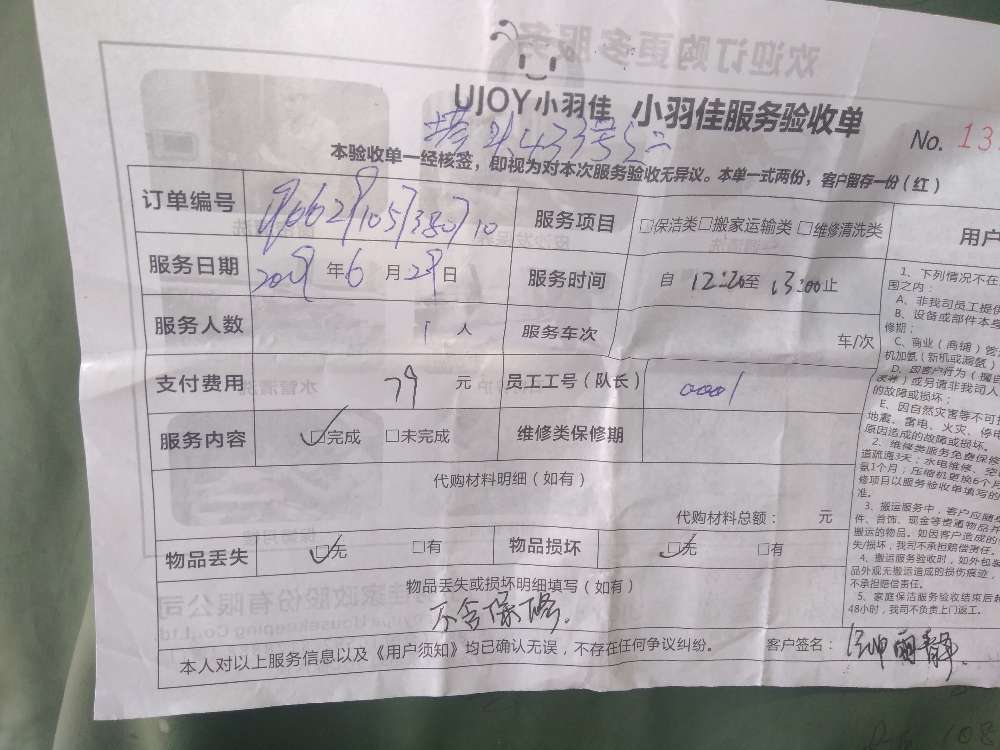 欢迎订购更多服务
UJOY小羽佳 小羽佳服务验收单
塔头433号
No. 13
本验收单一经核签，即视为对本次服务验收无异议。本单一式两份，客户留存一份（红）
订单编号 服务项目 □保洁类□搬家运输类 □维修清洗类
服务日期 2019 年 6 月 29 日 服务时间 自 12:20至 13:00止
服务人数 1 人 服务车次 车/次
支付费用 79 元 员工工号（队长） 0001
服务内容 ☑完成 □未完成 维修类保修期
代购材料明细（如有）
代购材料总额： 元
物品丢失 ☑无 □有 物品损坏 ☑无 □有
物品丢失或损坏明细填写（如有）
不含保修.
本人对以上服务信息以及《用户须知》均已确认无误，不存在任何争议纠纷。 客户签名：
用户
1、下列情况不在
围之内：
A、非我司员工提供
B、设备或部件本身
修期；
C、商业（商铺）
机加氨（新机或漏氨）
D、因客户行为
或另请非我司人
的故障或损坏；
E、因自然灾害等不可抗
地震、雷电、火灾、停电
原因造成的故障或损坏。
2、维修类服务免费保修
道疏通3天；水电维修、空
氨1个月；压缩机更换6个月
修项目以服务验收单填写的
准。
3、搬运服务中，客户应随
件、首饰、现金等贵重物品并
搬运的物品。如因客户造成的
失/损坏，我司不承担赔偿责任。
4、搬运服务验收时，如外包装
品外观无搬运造成的损伤痕迹，
不承担赔偿责任。
5、家庭保洁服务验收结束后超
48小时，我司不负责上门返工。